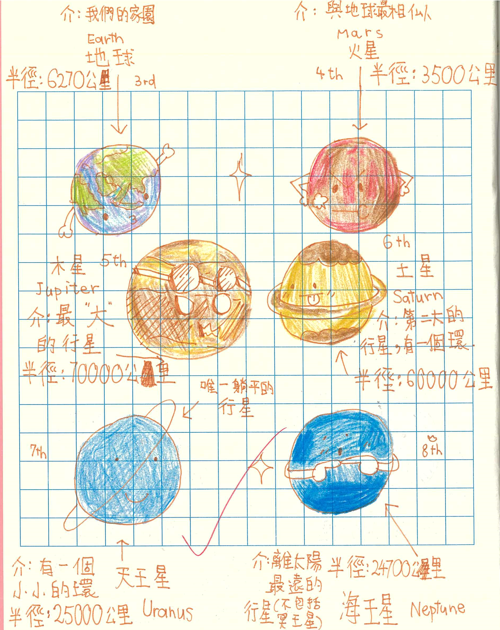 介:我們的家園
Earth
地球
半徑:6270公里
3rd
介:與地球最相似
Mars
火星
4th
半徑:3500公里
木星
5th
Jupiter
介:最"大"
的行星
半徑:70000公里
6th
土星
Saturn
介:第二大的
行星,有一個環
半徑:60000公里
唯一躺平的
行星
7th
介:有一個
小小的環
半徑:25000公里
天王星
Uranus
8th
介:離太陽
最遠的
行星(不包括
冥王星)
半徑:24700公里
海王星
Neptune